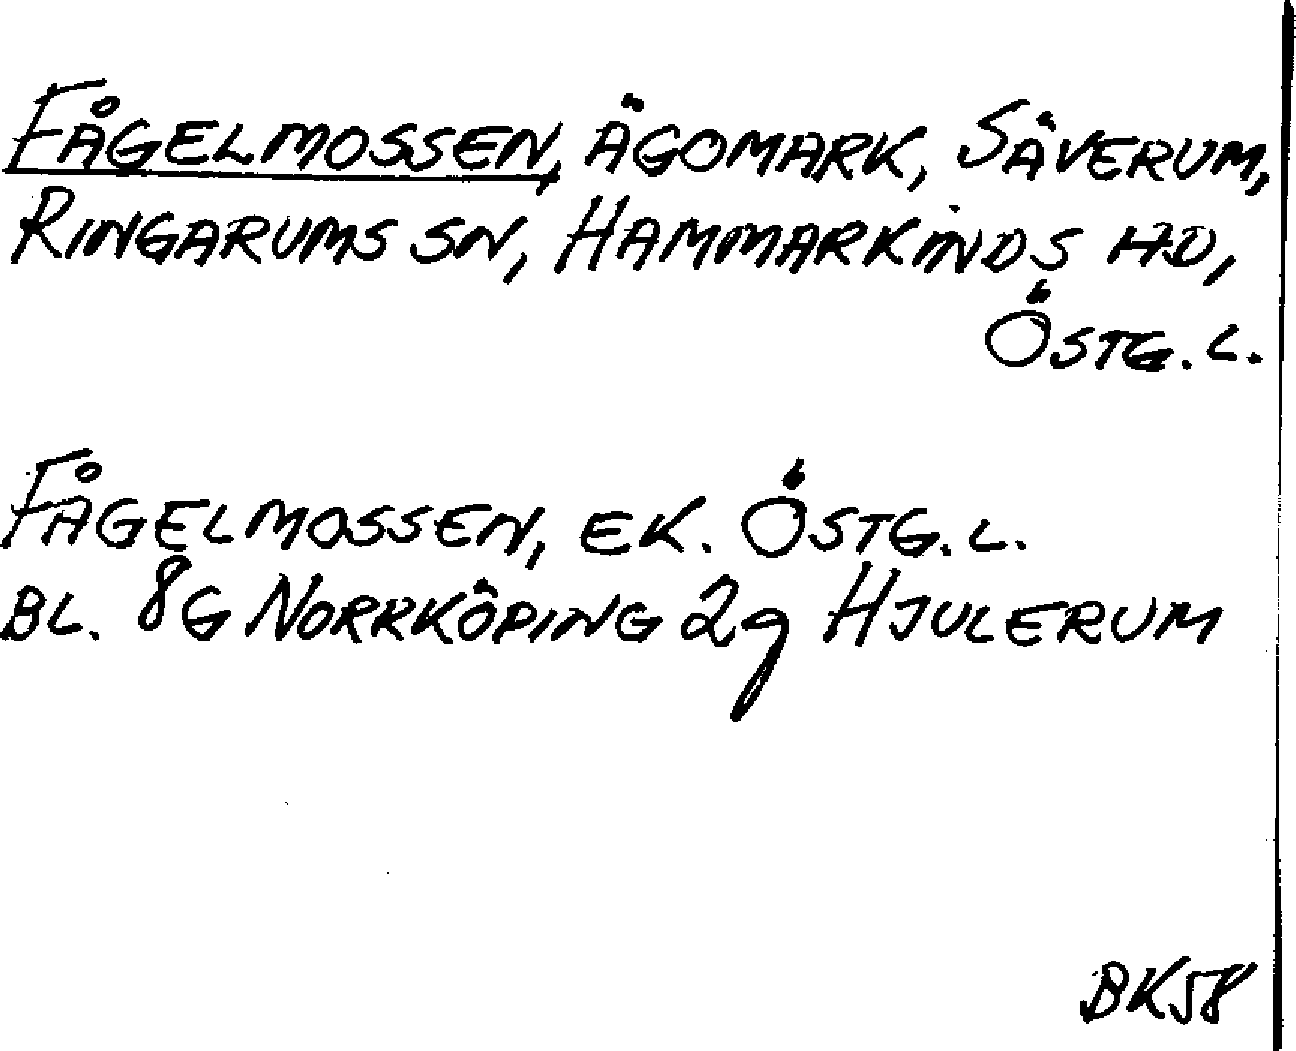 FÅGELMOSSEN, ÄGOMARK, SÄVERUM,
RINGARUMS SN, HAMMARKINDS HD,
ÖSTG. L.
FÅGELMOSSEN, EK. ÖSTG. L.
BL. 8G NORRKÖPING 2g HJULERUM
BK58